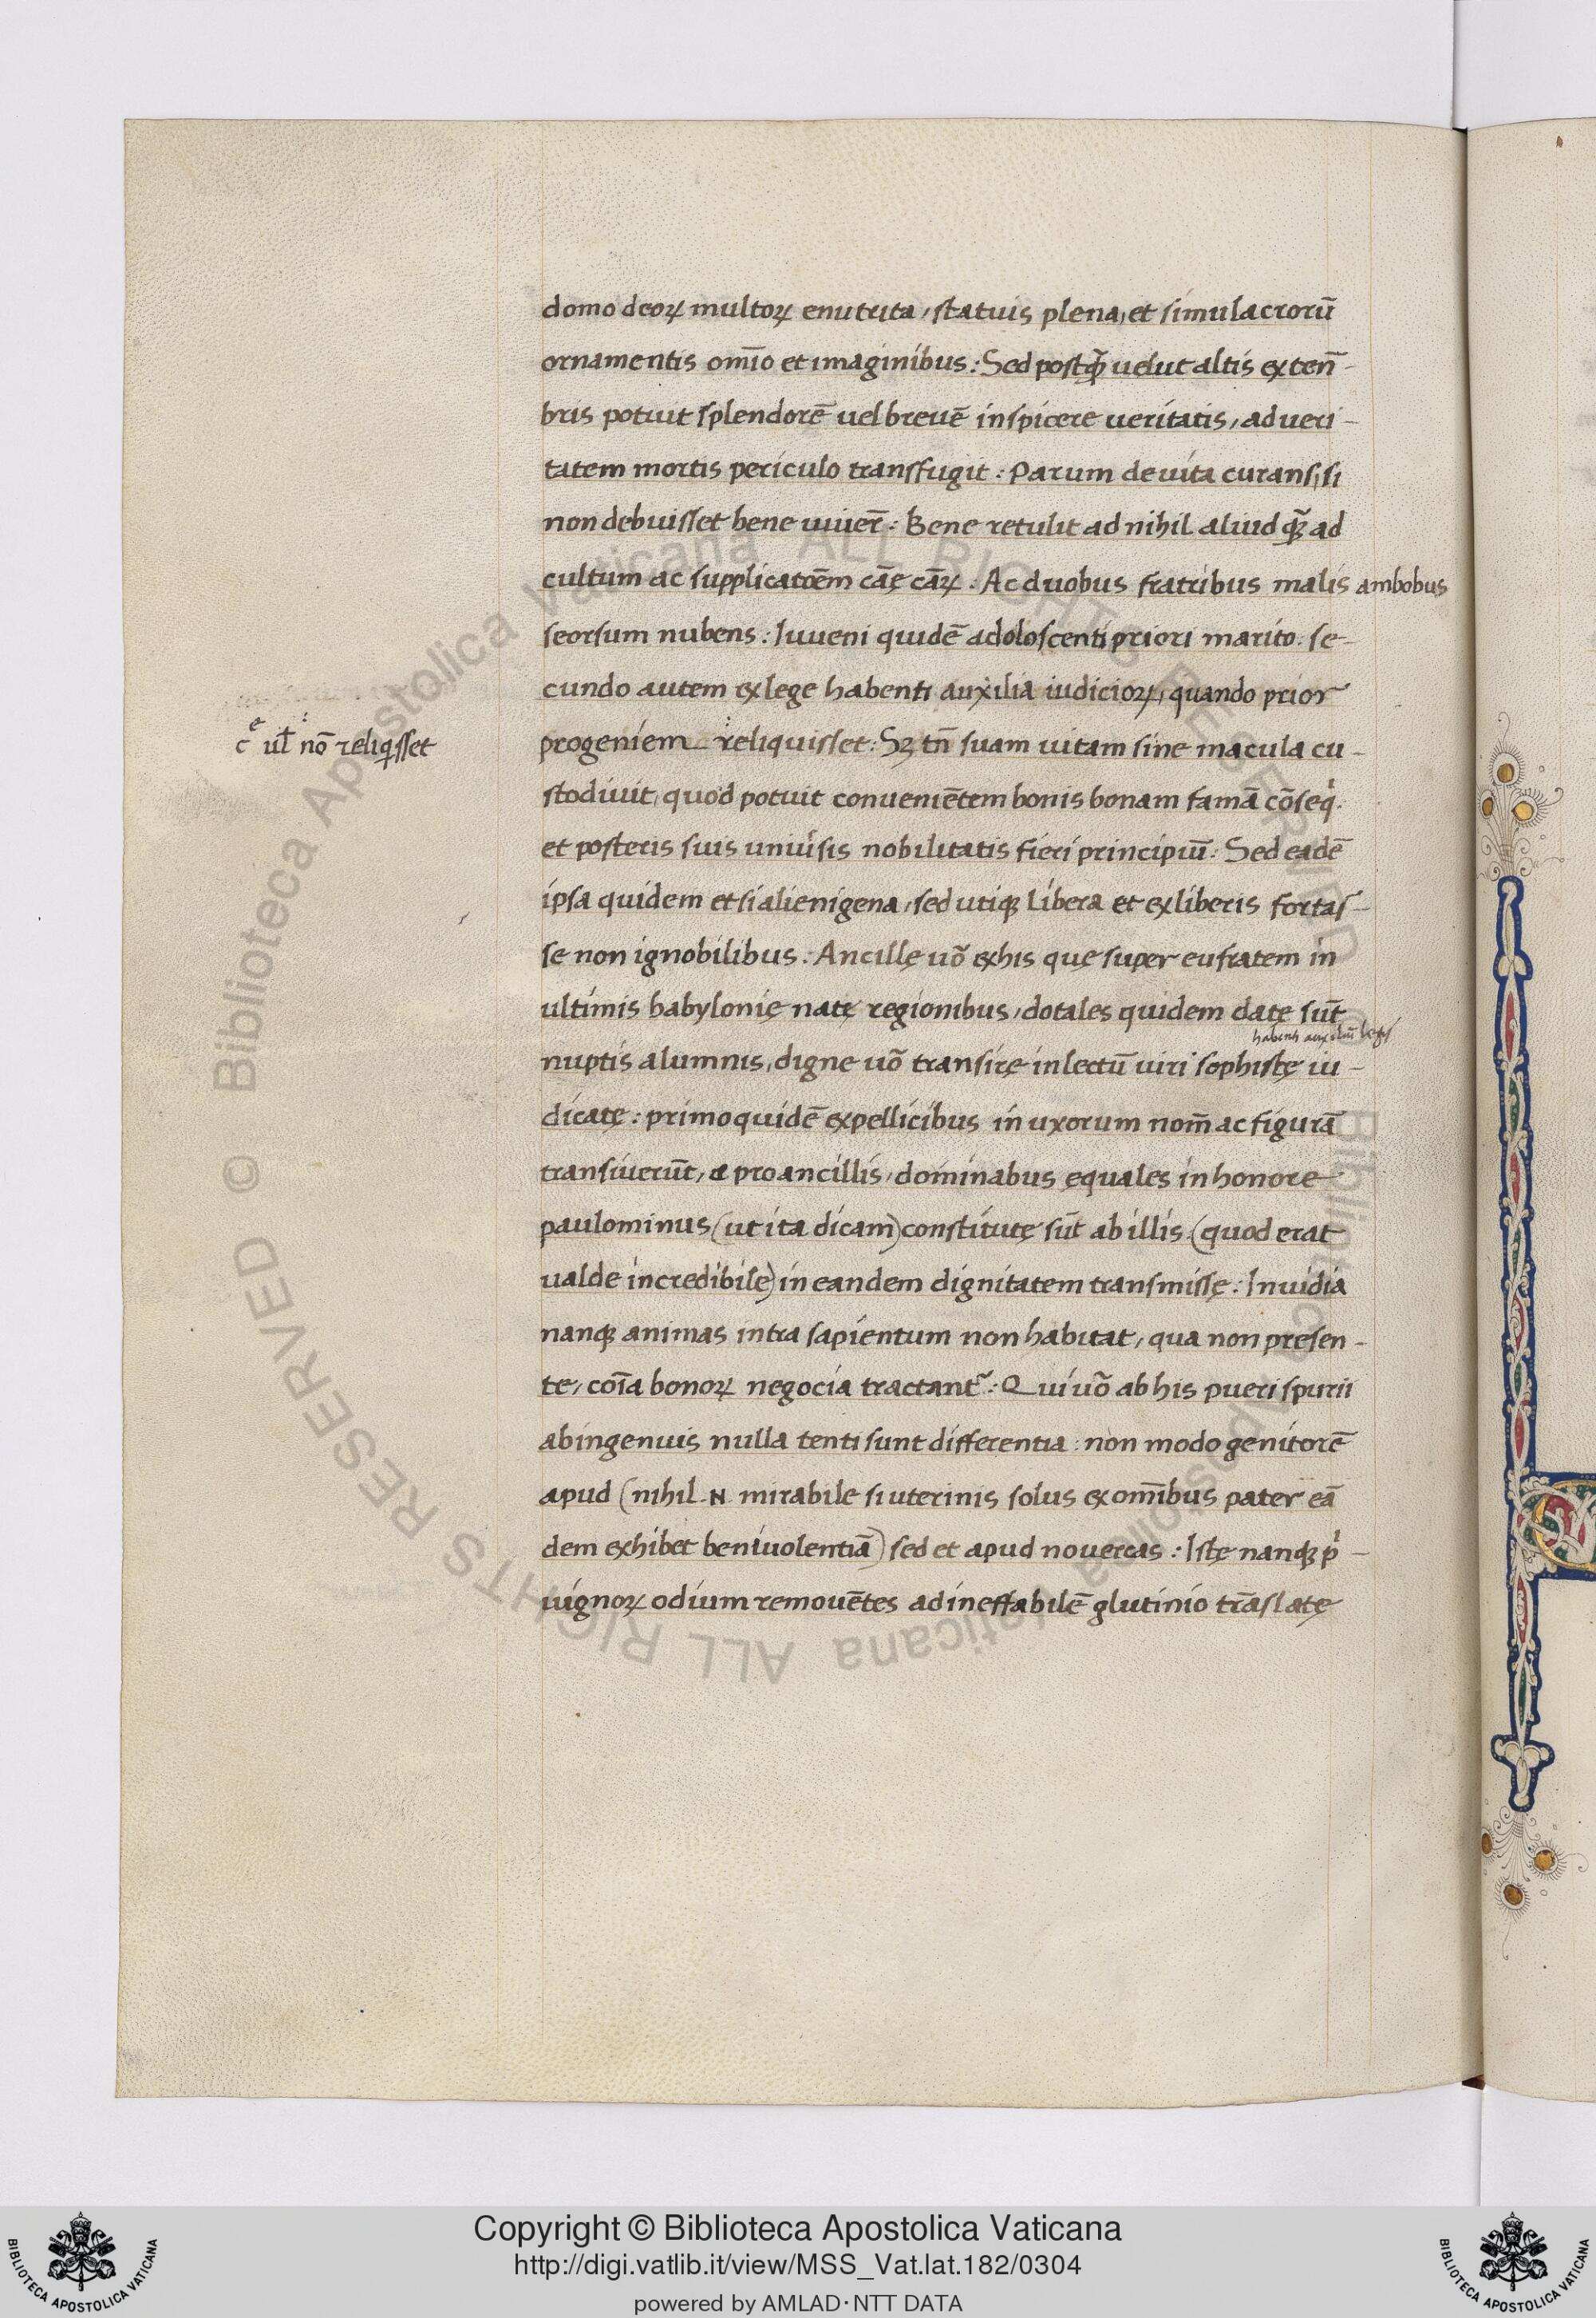 domo deoꝝ multoꝝ enutrita, statuis plena, et simulacrorū
ornamentis om̅io et imaginibus: Sed postq̃ velut altis ex ten̅-
bris potuit splendorē vel brevē inspicere veritatis, ad veri-
tatem mortis periculo transfugit: Parum de vita curans, si
non debuisset bene vivēr: Bene retulit ad nihil aliud qꝫ̃ ad
cultum ac supplicatōem cāę cāꝝ: Ac duobus fratribus malis ambobus
seorsum nubens: Iuveni quidē adoloscenti priori marito: se-
cundo autem ex lege habenti auxilia iudicioꝝ, quando prior
c̄ ul̄ nō reliqͥsset
progeniem reliquisset: Sꝫ tn̄ suam vitam sine macula cu-
stodivit, quod potuit conveniētem bonis bonam famā cōseqͥ.
et posteris suis univ̾sis nobilitatis fieri principiū: Sed eadē
ipsa quidem etsi alienigena, sed utiqꝫ libera et ex liberis fortas-
se non ignobilibus: Ancillę vō ex his quę super eufratem in
ultimis babylonię natę regionibus, dotales quidem datę sūt
nuptis alumnis, digne vō transirę in lectū viri sophistę iu-
dicatę: primo quidē ex pellicibus in uxorum nom̄ ac figurā
transiverūt, a pro ancillis, dominabus ęquales in honore
paulominus (ut ita dicam) constitutę sūt ab illis. (quod erat
valde incredibile) in eandem dignitatem transmissę: Invidia
nanqꝫ animas intra sapientum non habitat, qua non presen-
te, coīa bonoꝝ negocia tractant᷑: Qui vō ab his pueri spurii
ab ingenuis nulla tenti sunt differentia: non modo genitorē
apud (nihil .N. mirabile si uterinis solus ex om̄ibus pater eā
dem exhibet benivolentiā) sed et apud novercas: Istę nanqꝫ pͥ-
vignoꝝ odium removētes ad ineffabilē glutinio trāslatę
Copyright © Biblioteca Apostolica Vaticana
http://digi.vatlib.it/view/MSS_Vat.lat.182/0304
powered by AMLAD·NTT DATA